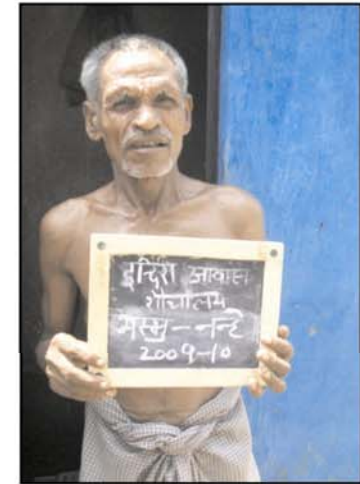 इन्दिरा आवास
शौचालय
भस्मु - नन्हे
2009-10